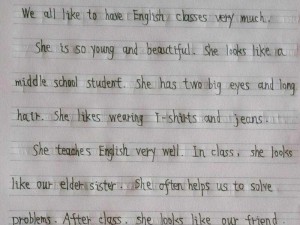 We all like to have English classes very much.
She is so young and beautiful. She looks like a
middle school student. She has two big eyes and long
hair. She likes wearing T-shirts and jeans.
She teaches English very well. In class, she looks
like our elder sister. She often helps us to solve
problems. After class, she looks like our friend.